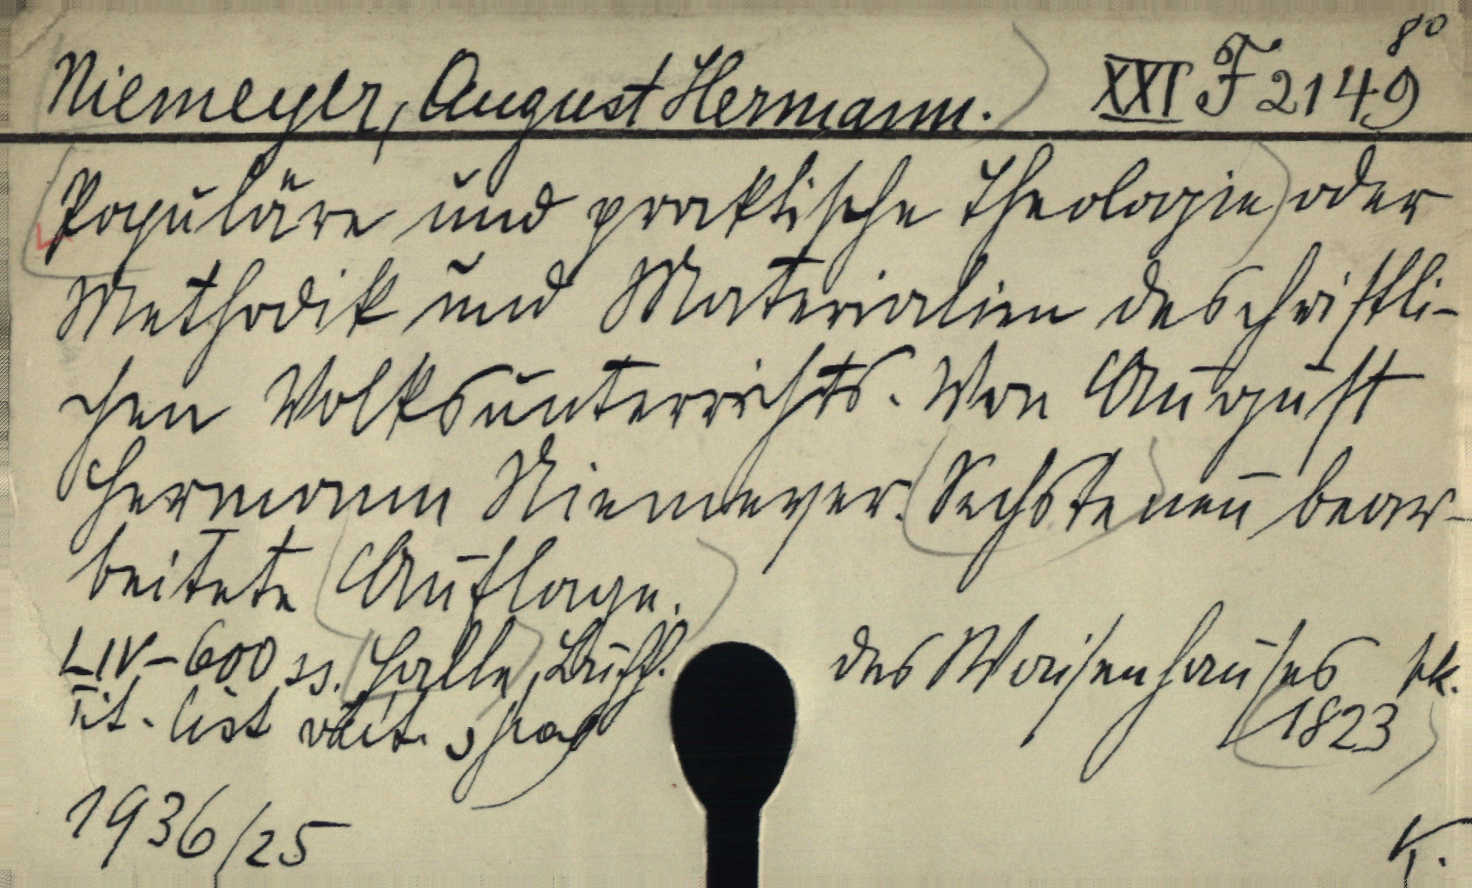 8°
Niemeyer, August Hermann. XXI F 2149
Populäre und praktische Theologie oder
Methodik und Materialien des christli-
chen Volksunterrichts. Von August
Hermann Niemeyer. Sechste neu bear-
beitete Auflage.
LIV-600 ss. Halle, Buchh. des Waisenhauses
Tit. list 1823
1936/25 K.